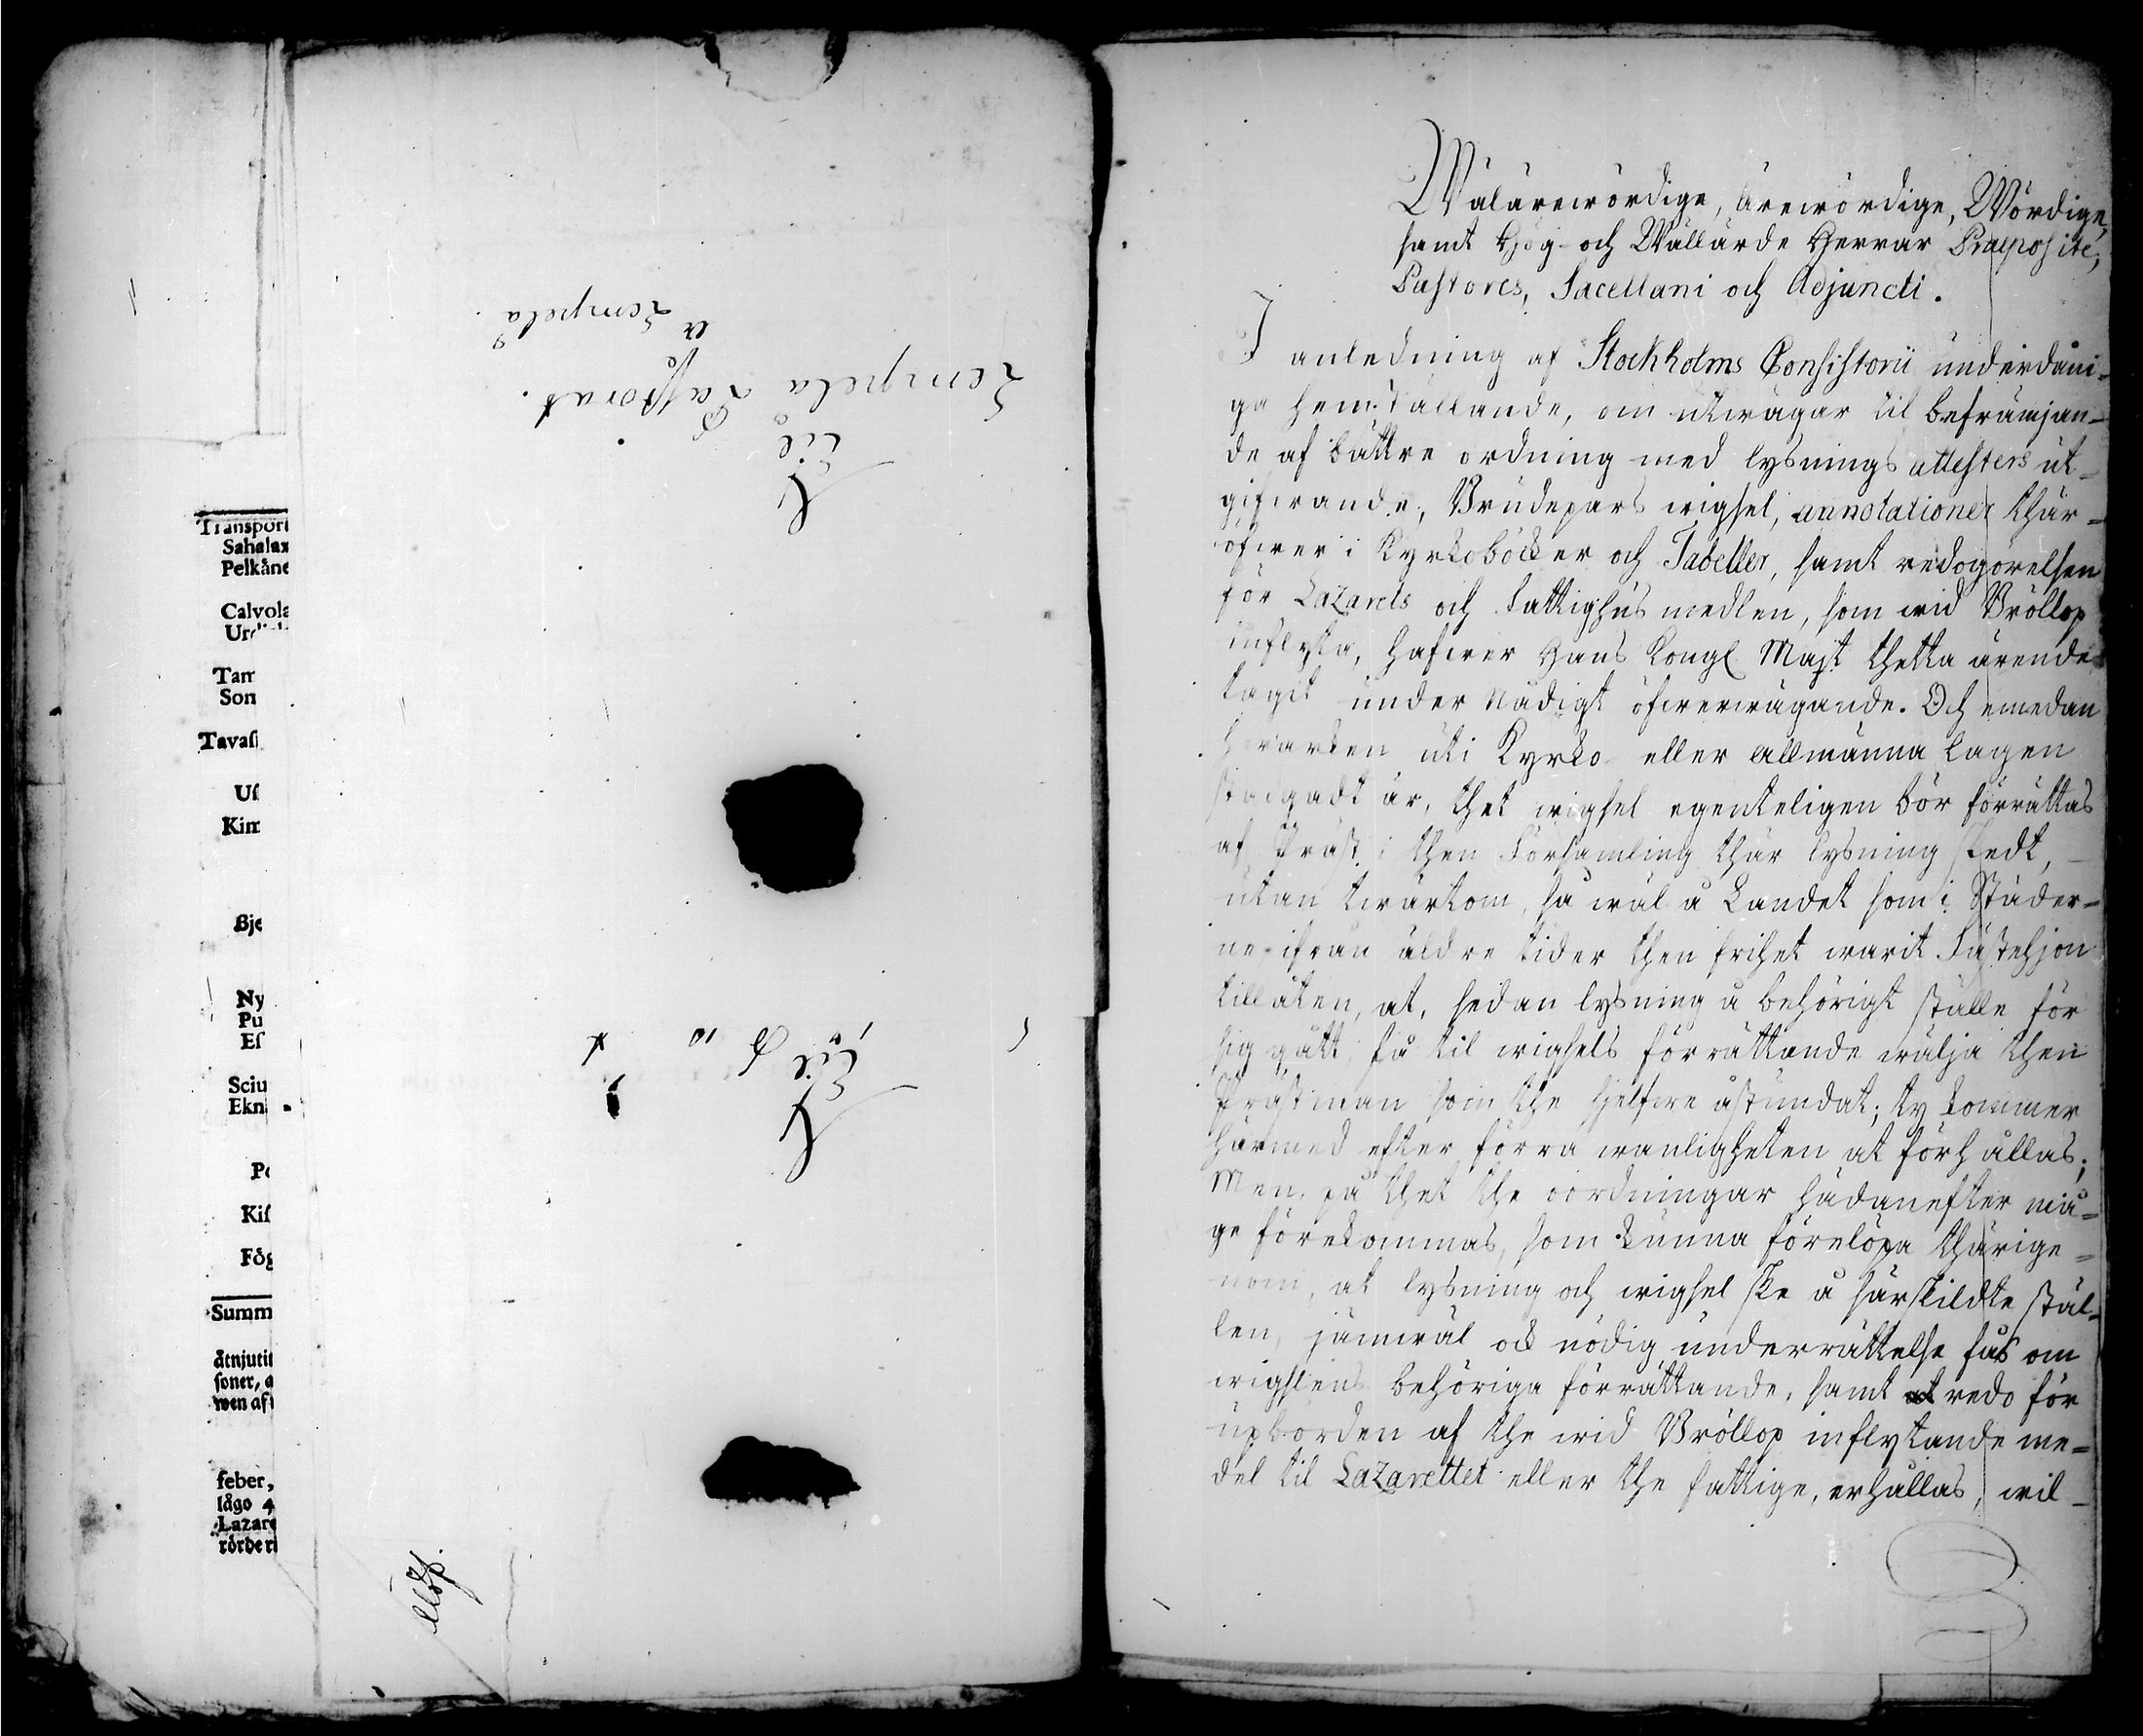 Transport
Sahalax
Pelkäne
Calvola
Tam
Som
Tavaſ
Uſ
Kim
Bje
Ny
Pu
Eſ
Sciu
Ekn
Pe
Kiſ
Fög
Summ
åtnjutit
ſoner, a
wen af
feber,
lågo 4
Lazare
rörde
Til
Lempela Pastorat.
Lempelä.
Til
Wälärewördige, ärewördige, Wördige,
samt Hög- och Wällärde Herrar Præposite,
Pastores, Sacellani och Adjuncti.
I anledning af Stockholms Consistorii underdåni-
ga hemställande, om utwägar til befrämjan-
de af bättre ordning med lysnings attesters ut-
gifwande, Brudepars wigsel, annotationer thär-
öfwer i Kyrkoböcker och Tabeller, samt redogörelsen
för Lazarets och Fattighus medlen, som wid Bröllop
inflyta, hafwer Hans Kongl Majt thetta ärende
tagit under nådigt öfwerwägande. Och emedan
hwarken uti Kyrko- eller allmänna lagen
stadgadt är, thet wigsel egenteligen bör förrättas
af Präst i then Församling thär lysning skedt,
utan twärtom, så wäl å Landet som i Städer-
ne ifrån äldre tider then frihet warit Fästehjon
tillåten, at, sedan lysning å behörigt ställe för
sig gått, få til wigsels förrättande wälja then
Prästman som the sjelfwe åstundat; ty kommer
härmed efter förra wanligheten at förhållas;
Men, på thet the oordningar hädanefter må-
ge förekommas, som kunna förelöpa thärige-
nom, at lysning och wigsel ske å särskildte stäl-
len, jämwäl ock nödig underrättelse fås om
wigslens behöriga förrättande, samt redo för
upborden af the wid Bröllop inflytande me-
del til Lazarettet eller the fattige, erhållas, wil-